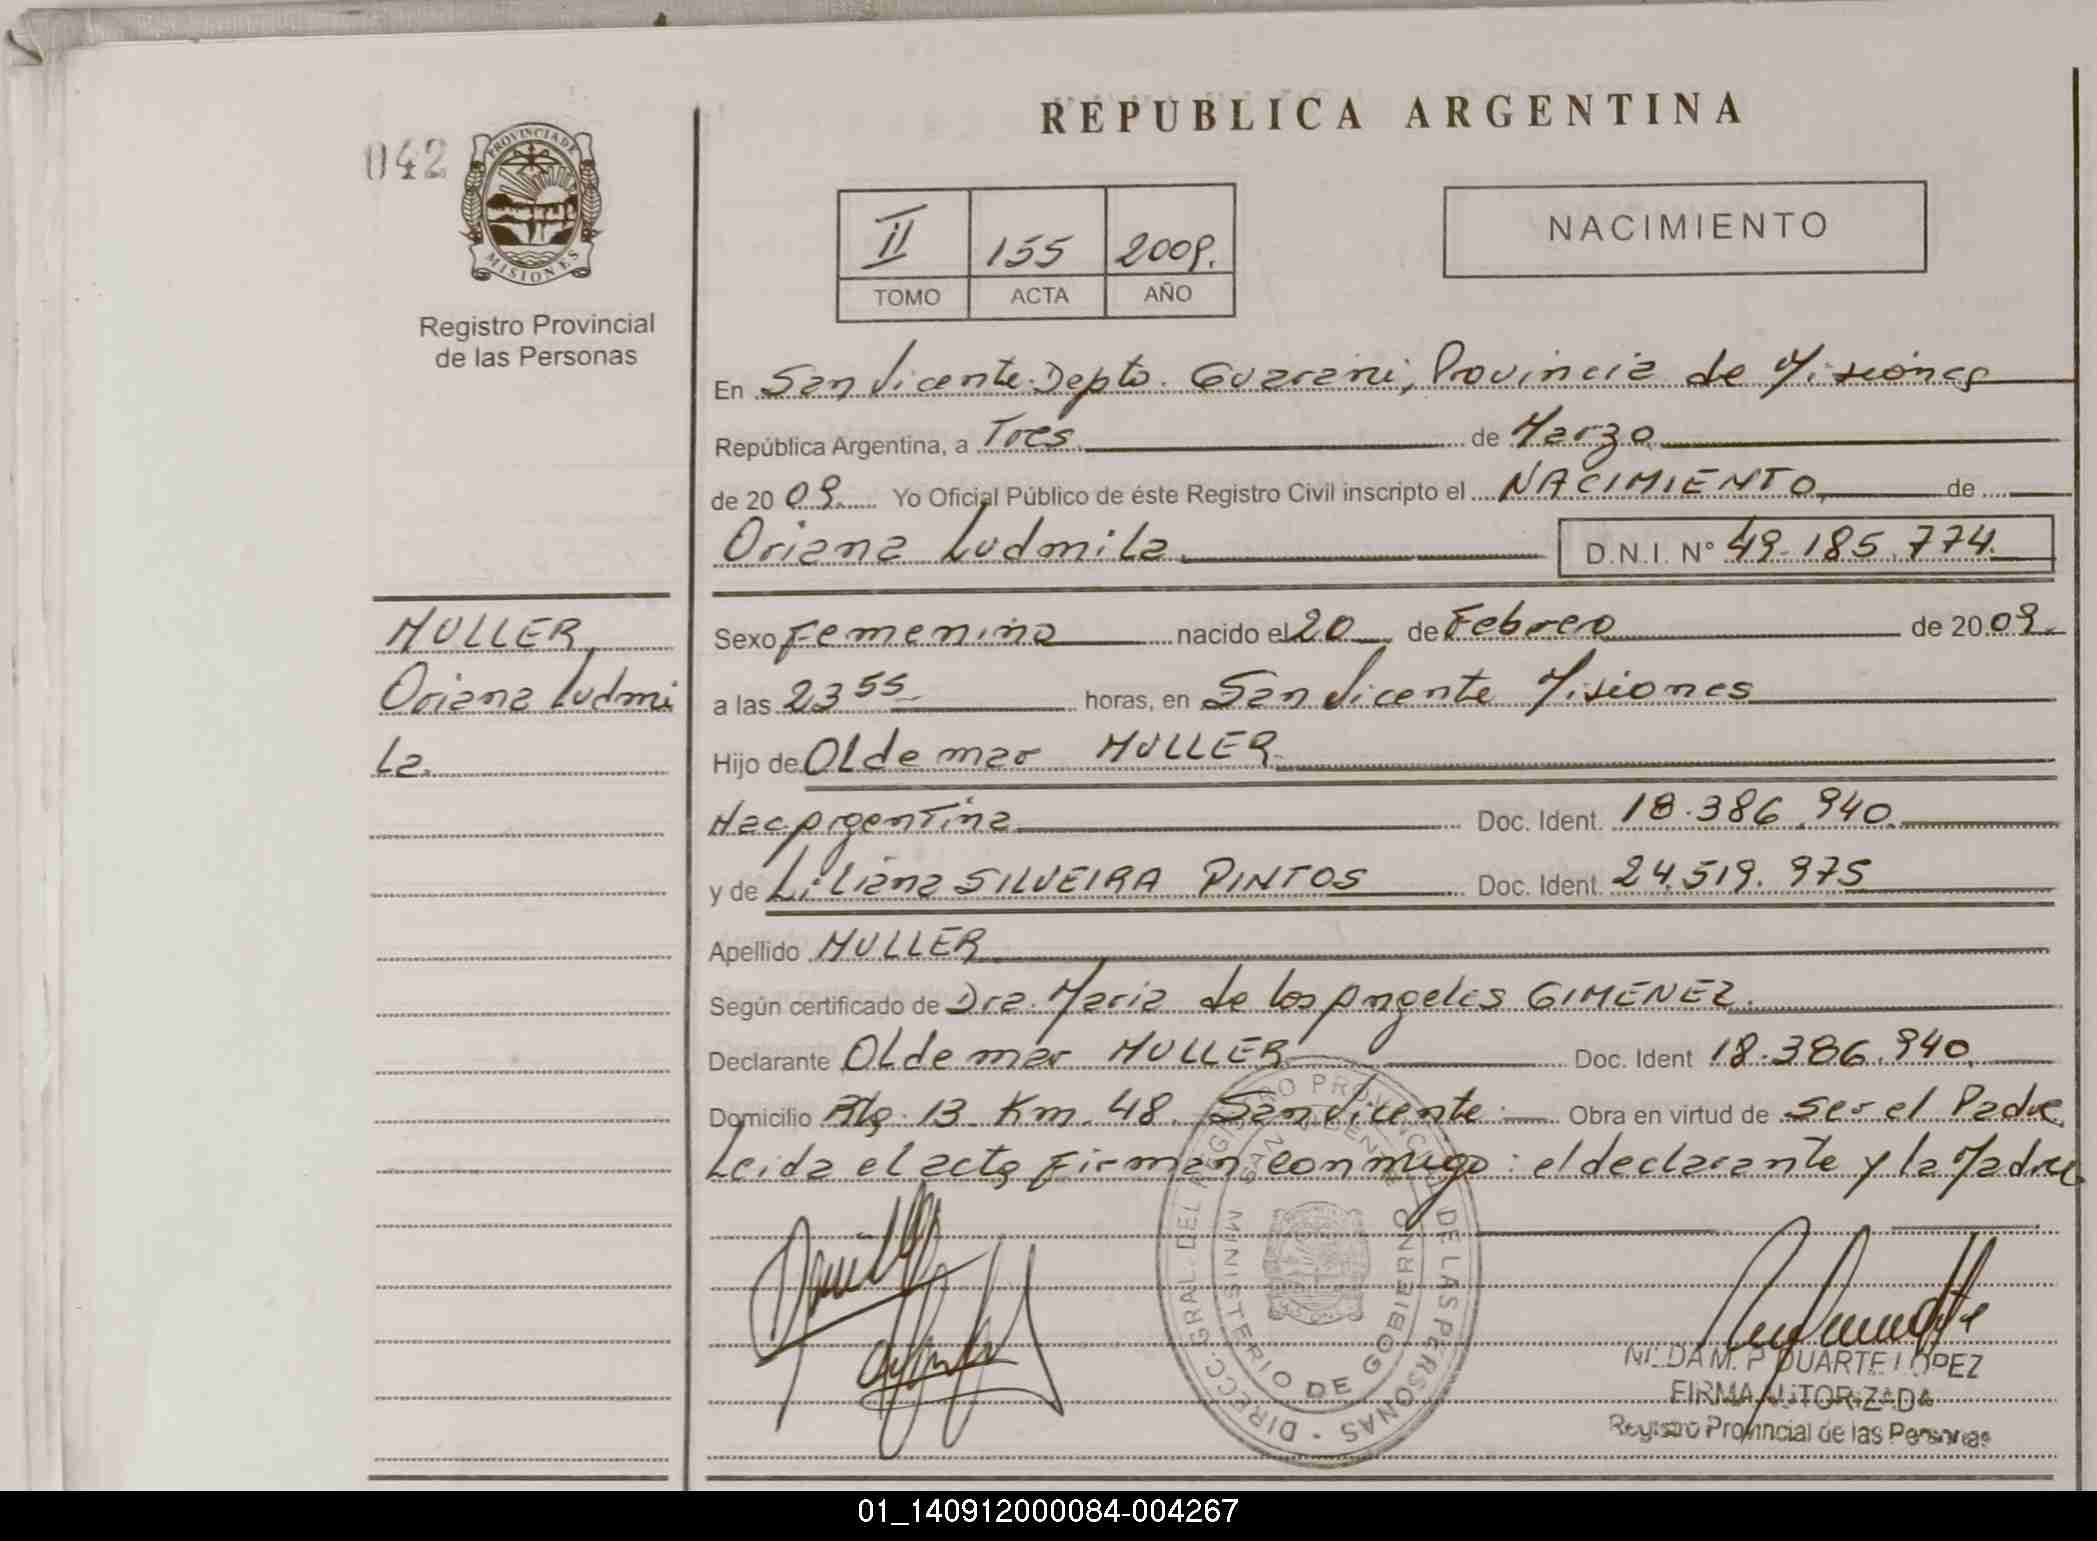 REPUBLICA ARGENTINA
042
PROVINCIA DE
MISIONES
Registro Provincial
de las Personas
II 155 2009.
TOMO ACTA AÑO
NACIMIENTO
En San Vicente. Depto. Guarani, Provincia de Misiones
República Argentina, a Tres. de Marzo
de 20 09. Yo Oficial Público de éste Registro Civil inscripto el NACIMIENTO de
Oriana Ludmila. D.N.I. N° 49.185.774.
MULLER
Oriana Ludmi
La.
Sexo Femenino nacido el 20 de Febrero de 20 09.
a las 23 55 horas, en San Vicente Misiones
Hijo de Oldemar MULLER
Nac. Argentina Doc. Ident. 18.386.940.
y de Liliana SILVEIRA PINTOS Doc. Ident. 24.519.975
Apellido MULLER
Según certificado de Dra. Maria de los Angeles GIMENEZ.
Declarante Oldemar MULLER Doc. Ident 18.386.940.
Domicilio Rta. 13. Km. 48. San Vicente. Obra en virtud de ser el Padre
Leida el acta Firman conmigo: el declarante y la Madre
DIRECC. GRAL. DEL REGISTRO PROVINCIAL DE LAS PERSONAS
SAN VICENTE
MINISTERIO DE GOBIERNO
NILDA M. P. DUARTE LOPEZ
FIRMA AUTORIZADA
Registro Provincial de las Personas
01_140912000084-004267